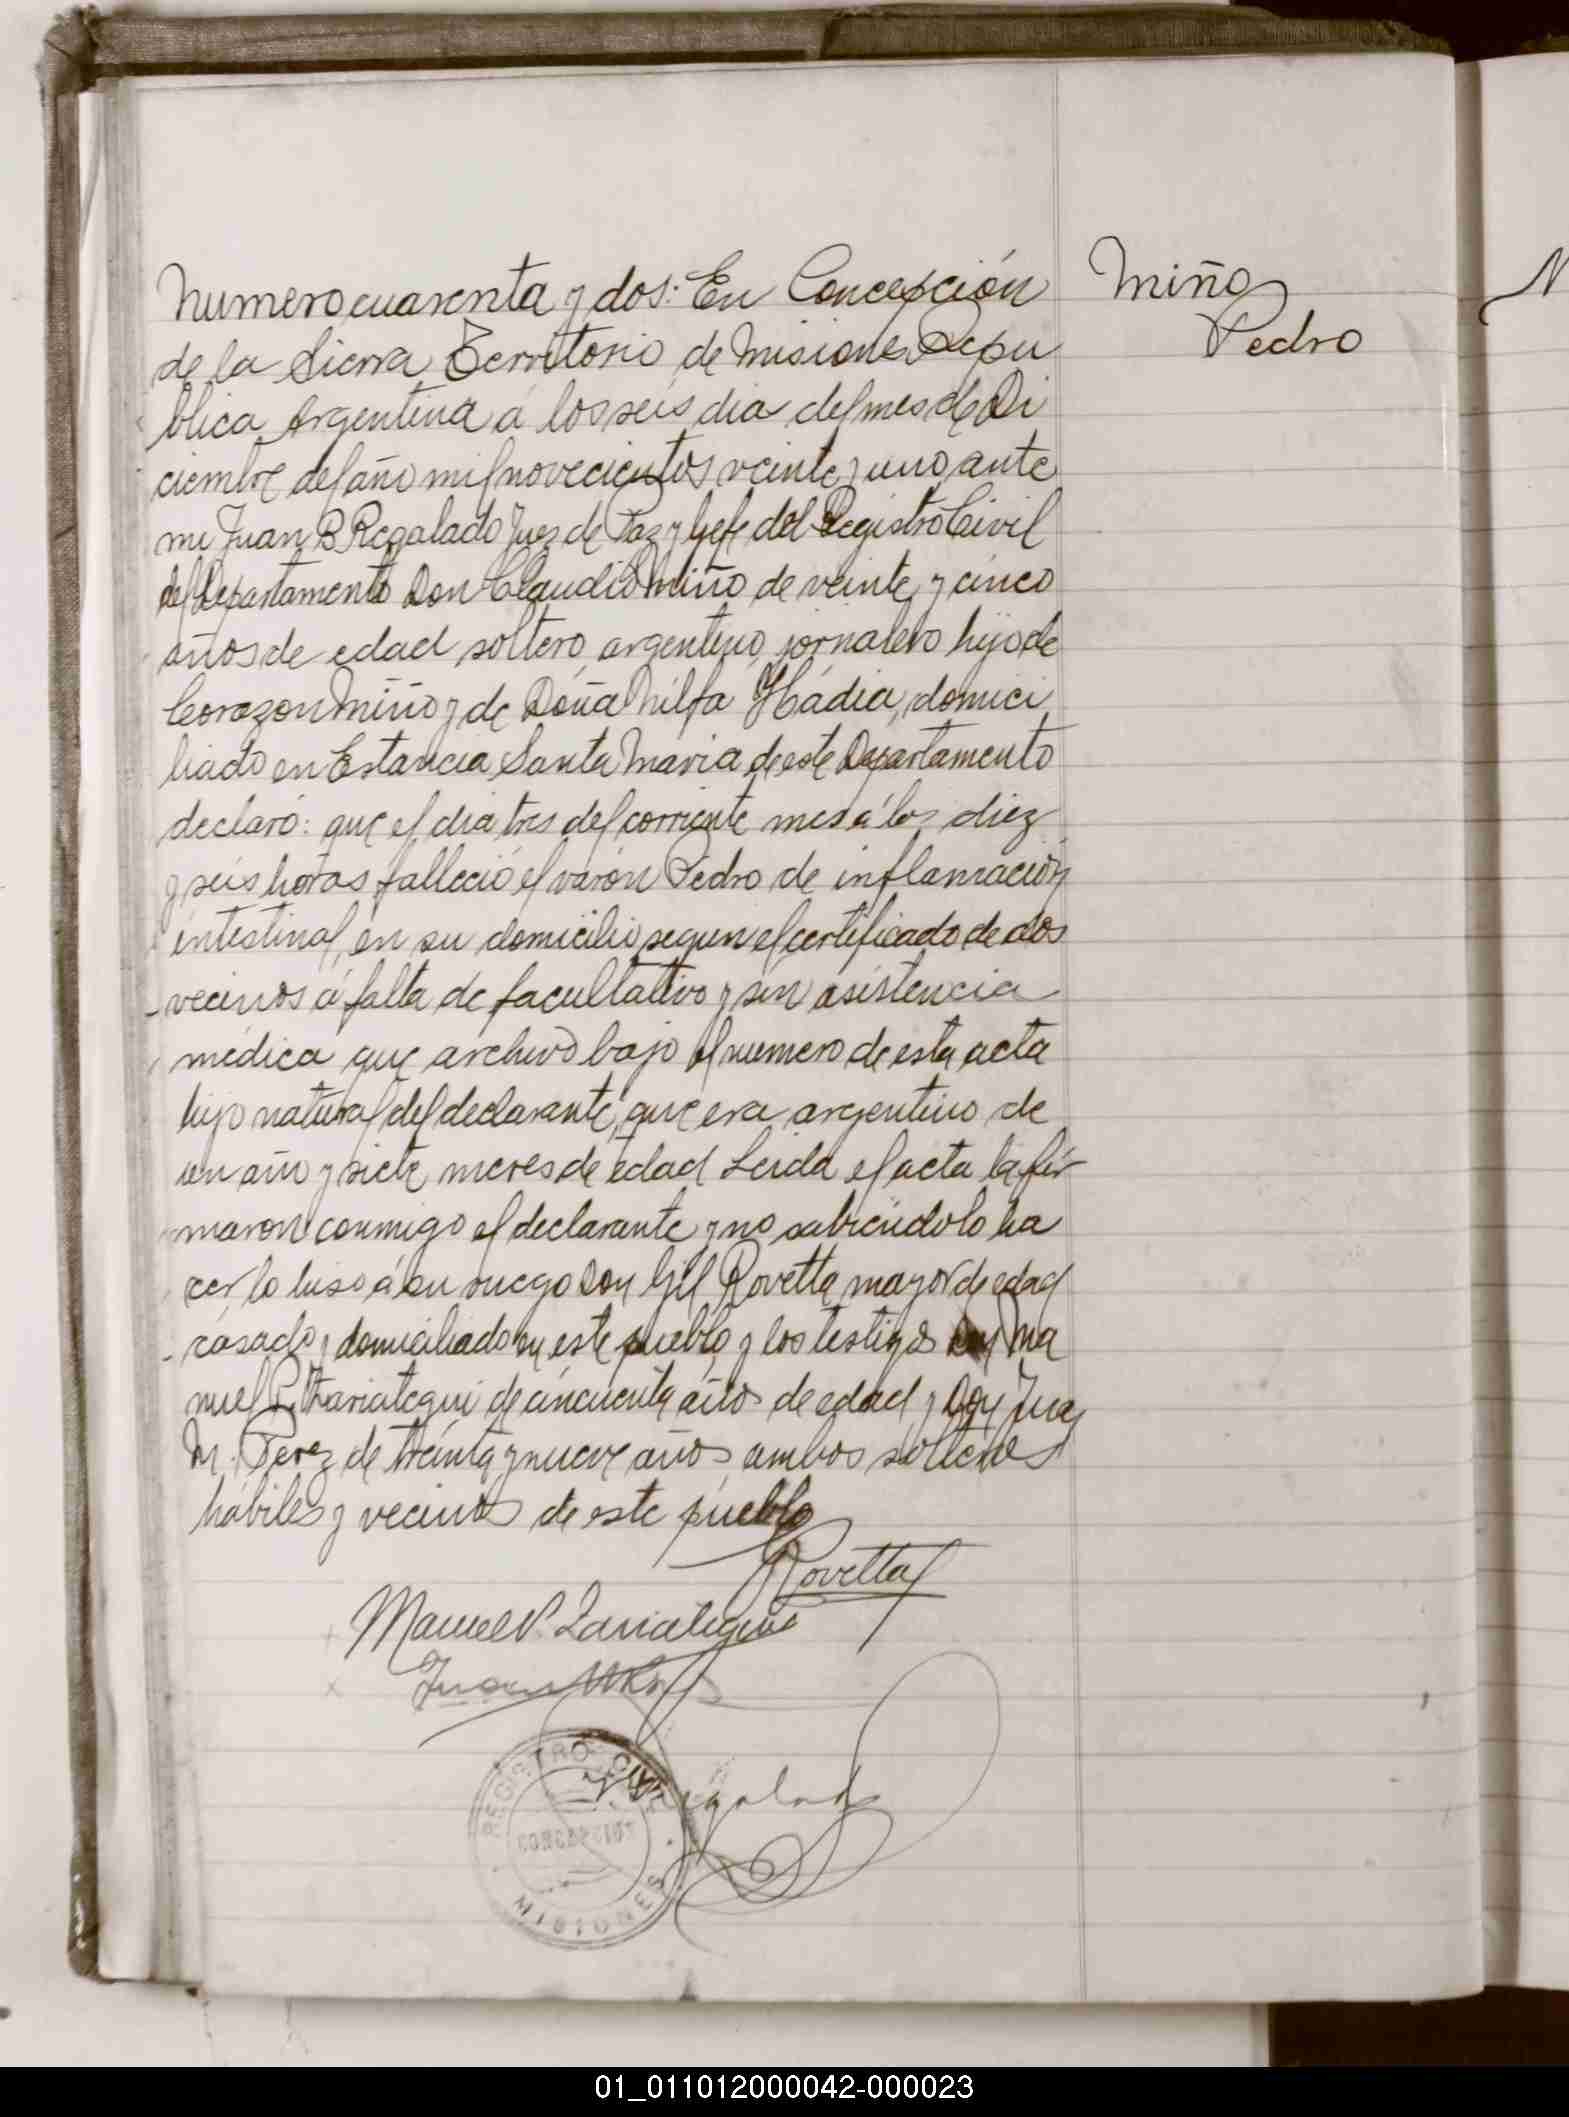 Numero cuarenta y dos: En Concepción
Miño
Pedro
de la Sierra Territorio de Misiones Repu
blica Argentina á los seis dia del mes de Di
ciembre del año mil novecientos veinte y uno, ante
mi Juan B Regalado Juez de Paz y Gefe del Registro Civil
del Departamento Don Claudio Miño de veinte y cinco
años de edad soltero, argentino, jornalero hijo de
Corazon Miño y de Doña domici
liado en Estancia Santa Maria de este Departamento
declaró: que el dia tres del corriente mes á las diez
y seis horas falleció el varón Pedro de inflamación
intestinal, en su domicilio, segun el certificado de dos
vecinos á falta de facultativo y sin asistencia
médica que archivo bajo el numero de esta acta
hijo natural del declarante, que era argentino de
un año y siete meses de edad Leida el acta la fir
maron conmigo el declarante y no sabiendolo ha
cer, lo hiso á su ruego Don Gil Rovetta mayor de edad
casado y domiciliado en este pueblo, y los testigos Don Ma
nuel P. de cincuenta años de edad y Don Juan
M. Perez de treinta y nueve años ambos solteros
hábiles y vecinos de este pueblo
Rovetta
Manuel P.
Juan M
Regalado
REGISTRO CIVIL
MISIONES
01_011012000042-000023